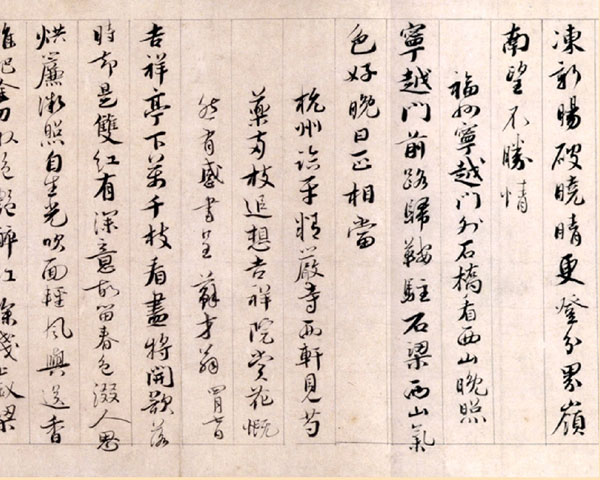 凍新暘破曉晴更登分界嶺
南望不勝情
福州寧越門外石橋看西山晚照
寧越門前路歸鞍駐石梁西山氣
色好晚日正相當
杭州臨平精嚴寺西軒見芍
藥兩枝追想吉祥院賞花慨
然有感書呈蘇才翁
吉祥亭下萬千枝看盡將開欲落
時却是雙紅有深意故留春色綴人思
烘簾微照自生光吹面輕風與送香
誰把金刀收絕艷醉紅深淺上釵梁